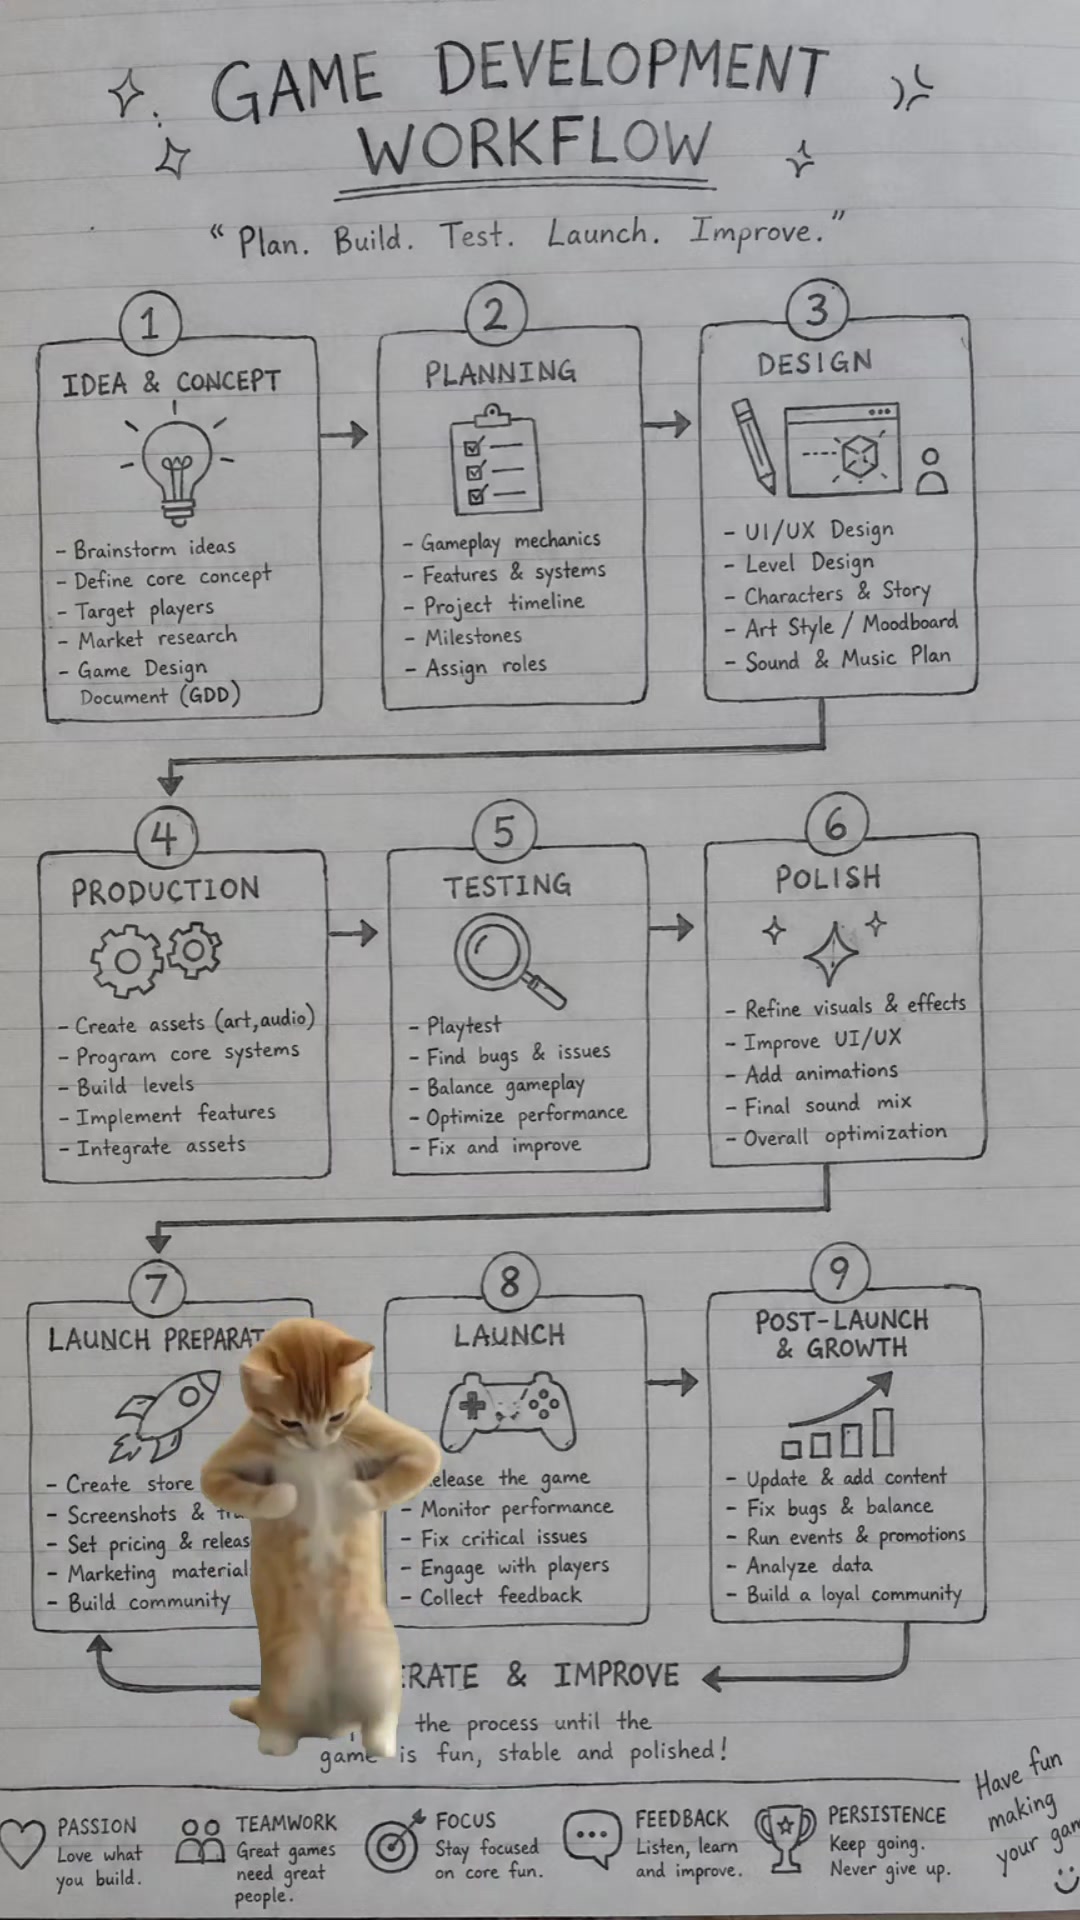 GAME DEVELOPMENT
WORKFLOW
“Plan. Build. Test. Launch. Improve.”
1
IDEA & CONCEPT
- Brainstorm ideas
- Define core concept
- Target players
- Market research
- Game Design
Document (GDD)
2
PLANNING
- Gameplay mechanics
- Features & systems
- Project timeline
- Milestones
- Assign roles
3
DESIGN
- UI/UX Design
- Level Design
- Characters & Story
- Art Style / Moodboard
- Sound & Music Plan
4
PRODUCTION
- Create assets (art,audio)
- Program core systems
- Build levels
- Implement features
- Integrate assets
5
TESTING
- Playtest
- Find bugs & issues
- Balance gameplay
- Optimize performance
- Fix and improve
6
POLISH
- Refine visuals & effects
- Improve UI/UX
- Add animations
- Final sound mix
- Overall optimization
7
LAUNCH PREPARAT
- Create store
- Screenshots &
- Set pricing & releas
- Marketing material
- Build community
8
LAUNCH
elease the game
- Monitor performance
- Fix critical issues
- Engage with players
- Collect feedback
9
POST-LAUNCH
& GROWTH
- Update & add content
- Fix bugs & balance
- Run events & promotions
- Analyze data
- Build a loyal community
ERATE & IMPROVE
the process until the
game is fun, stable and polished!
PASSION
Love what
you build.
TEAMWORK
Great games
need great
people.
FOCUS
Stay focused
on core fun.
FEEDBACK
Listen, learn
and improve.
PERSISTENCE
Keep going.
Never give up.
Have fun
making
your gam